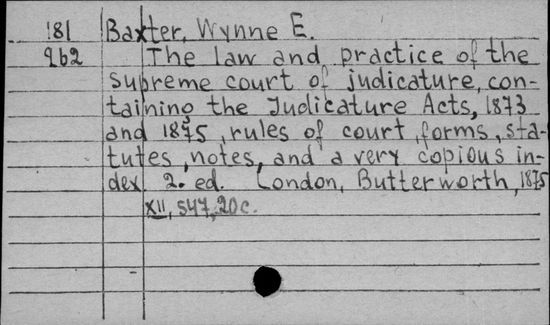 181 Baxter, Wynne E.
262 The law and practice of the
supreme court of judicature, con-
taining the Judicature Acts, 1873
and 1875, rules of court, forms, sta-
tutes, notes, and a very copious in-
dex. 2. ed. London, Butterworth, 1875
XII, 547, 20 c.